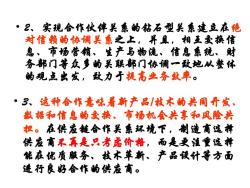 • 2、实现合作伙伴关系的钻石型关系建立在绝
对信赖的协调关系之上，并且，相互交换信
息、市场营销、生产与物流、信息系统、财
务部门等众多的关联部门协调一致地从整体
的观点出发，致力于提高业务效率。
• 3、这种合作意味着新产品/技术的共同开发、
数据和信息的交换、市场机会共享和风险共
担。在供应链合作关系环境下，制造商选择
供应商不再是只考虑价格，而是更注重选择
能在优质服务、技术革新、产品设计等方面
进行良好合作的供应商。